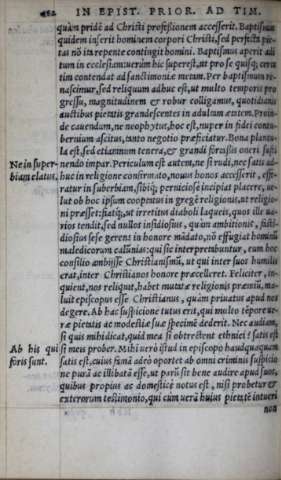 462 IN EPIST. PRIOR. AD TIM.
quàm pridē ad Christi professionem accesserit. Baptismus
quidem inserit hominem corpori Christi, sed perfecta pie-
tas nō ita repente contingit homini. Baptismus aperit adi
tum in ecclesiā: uerùm hic superest, ut pro se quisq; certa
tim contendat ad sanctimoniæ metam. Per baptismum re-
nascimur, sed reliquum adhuc est, ut multo temporis pro
gressu, magnitudinem & robur colligamus, quotidianis
auctibus pietatis grandescentes in adultam ætatem. Proin-
de cauendum, ne neophytus, hoc est, nuper in fidei contu-
bernium ascitus, tanto negotio præficiatur. Bona plantu-
la est, sed etiamnum tenera, & grandi fortassis oneri susti
Ne in super-
biam elatus,
nendo impar. Periculum est autem, ne si rudi, nec satis ad-
huc in religione confirmato, nouus honos accesserit, effe-
ratur in superbiam, sibiq; perniciosè incipiat placere, ue-
lut ob hoc ipsum cooptatus in gregē religionis, ut religio-
ni præsset: fiatq;, ut irretitus diaboli laqueis, quos ille ua-
rios tendit, sed nullos insidiosius, quàm ambitionis, fasti-
diosius sese gerens in honore mādato, nō effugiat hominū
maledicorum calūnias: qui sic interpretabuntur, eum hoc
consilio ambisse Christianismū, ut qui inter suos humilis
erat, inter Christianos honore præcelleret. Feliciter, in-
quient, nos reliquit, habet mutatæ religionis præmiū, ma-
luit episcopus esse Christianus, quàm priuatus apud nos
degere. Ab hac suspicione tutus erit, qui multo tēpore ue-
ræ pietatis ac modestiæ suæ specimē dederit. Nec audiam,
si quis mihi dicat, quid mea si obtrectent ethnici? satis est
Ab his qui
foris sunt.
si meis prober. Mihi uerò istud in episcopo haudquaquam
satis est, cuius famā adeò oportet ab omni criminis suspicio
ne purā ac illibatā esse, ut parū sit bene audire apud suos,
quibus propius ac domesticè notus est, nisi probetur &
exterorum testimonio, qui cùm uerā huius pietatē intueri
non